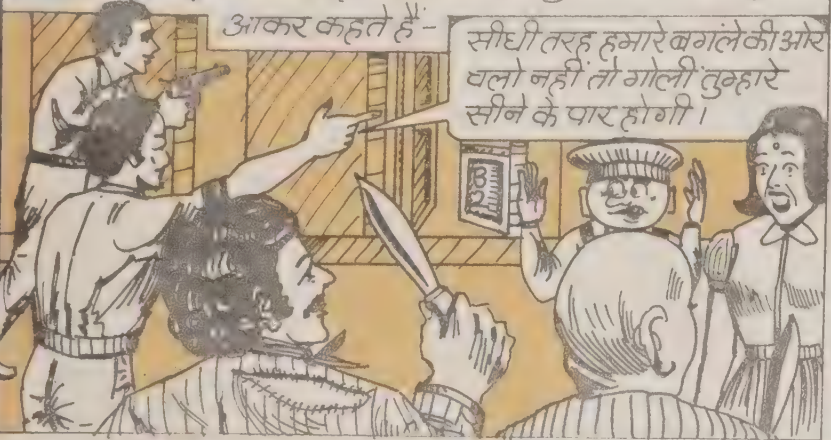 आकर कहते हैं-
सीधी तरह हमारे बगंले की ओर
चलो नहीं तो गोली तुम्हारे
सीने के पार होगी।